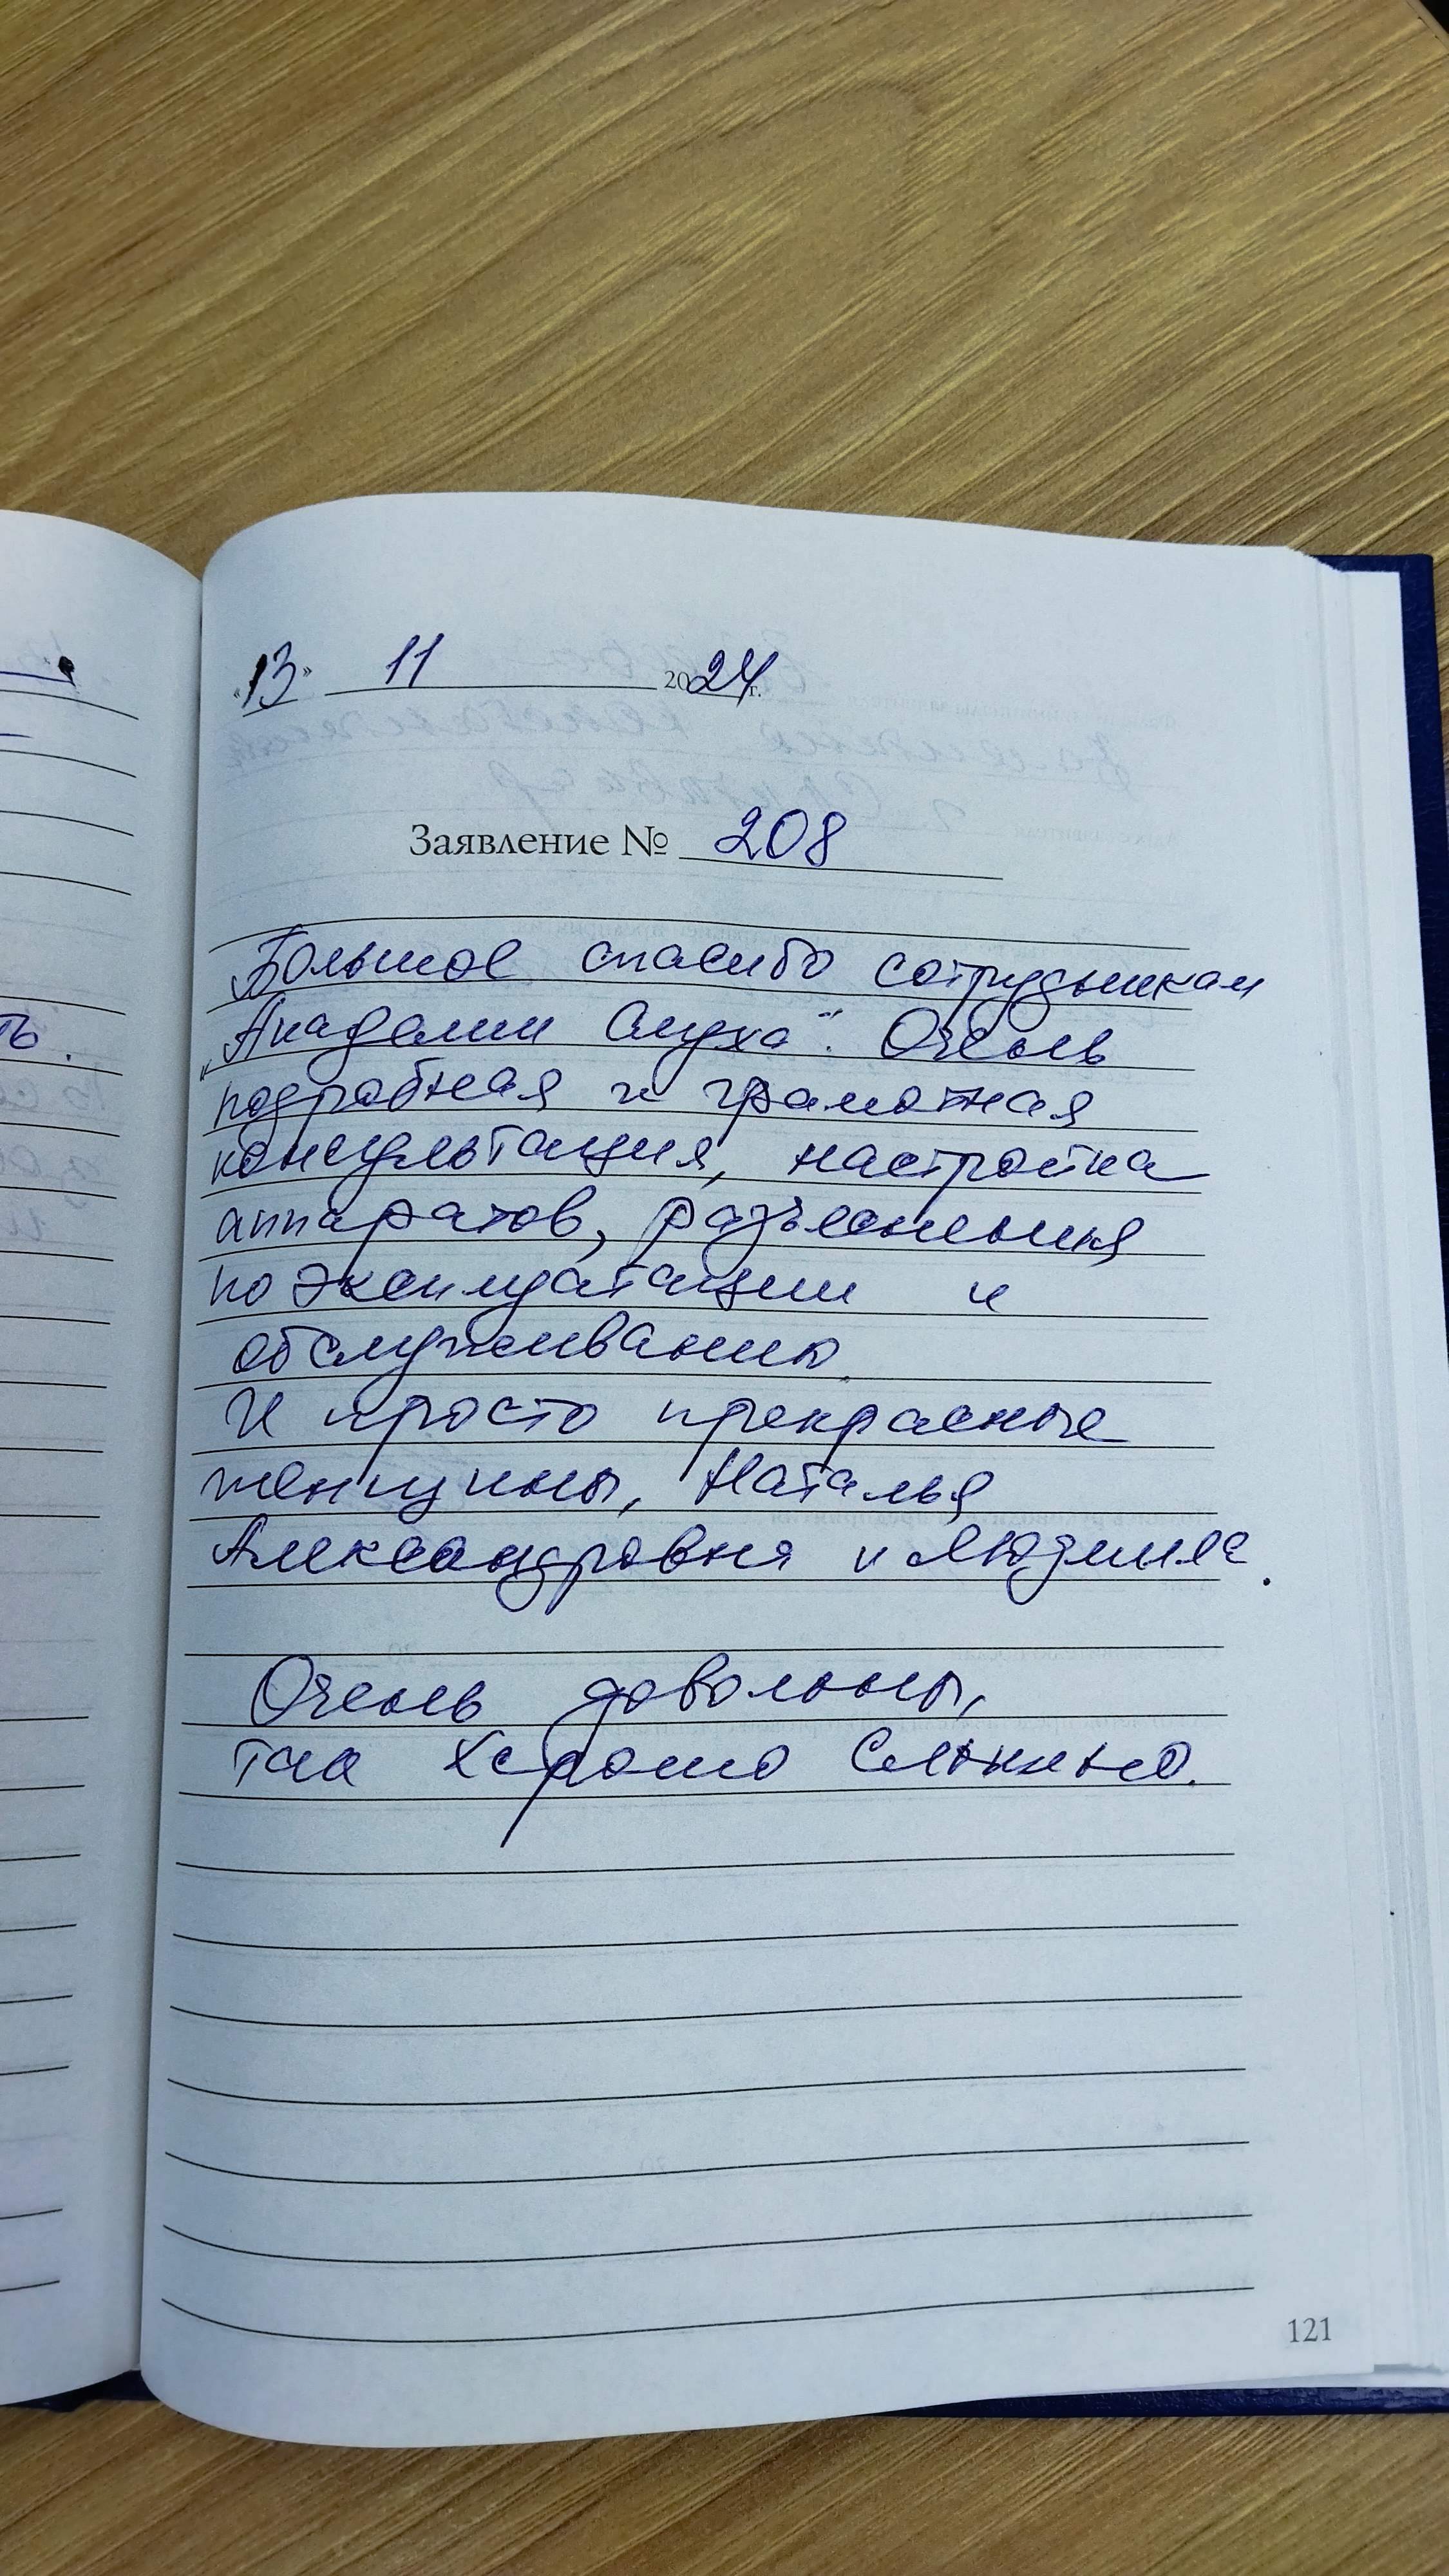 «13» 11 2024 г.
Заявление № 208
Большое спасибо сотрудникам
„Академии Слуха". Очень
подробная и грамотная
консультация, настройка
аппаратов, разъеснения
по эксплуатации и
обслуживанию.
И просто прекрасные
женщины, Наталья
Александровня и Людмила.
Очень довольны,
так хорошо слышно.
121